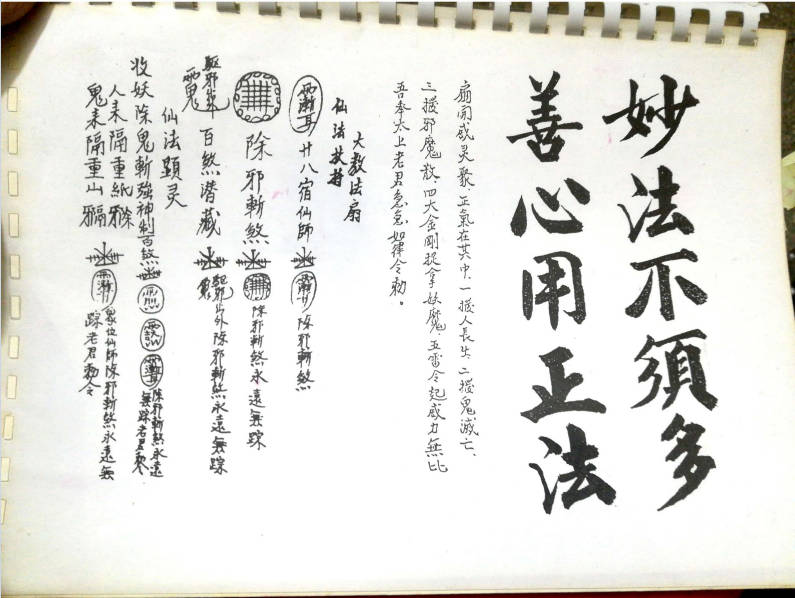 妙法不須多
善心用正法
扇開威灵聚、正氣在其中、一撥人長生、二撥鬼滅亡、
三撥邪魔散、四大金剛捉拿妖魔、五雷令起威力無比
吾奉太上老君急急如律令勅。
大教法扇
仙法扶持
廿八宿仙師 除邪斬煞
除邪斬煞 除邪斬煞永遠無踪
驅邪出外 百煞潛藏 驅邪出外除邪斬煞永遠無踪
仙法顕灵
收妖除鬼斬強神制百煞 除邪斬煞永遠無踪老君勅令
人来隔重紙
鬼来隔重山 仙師除邪斬煞永遠無踪老君勅令